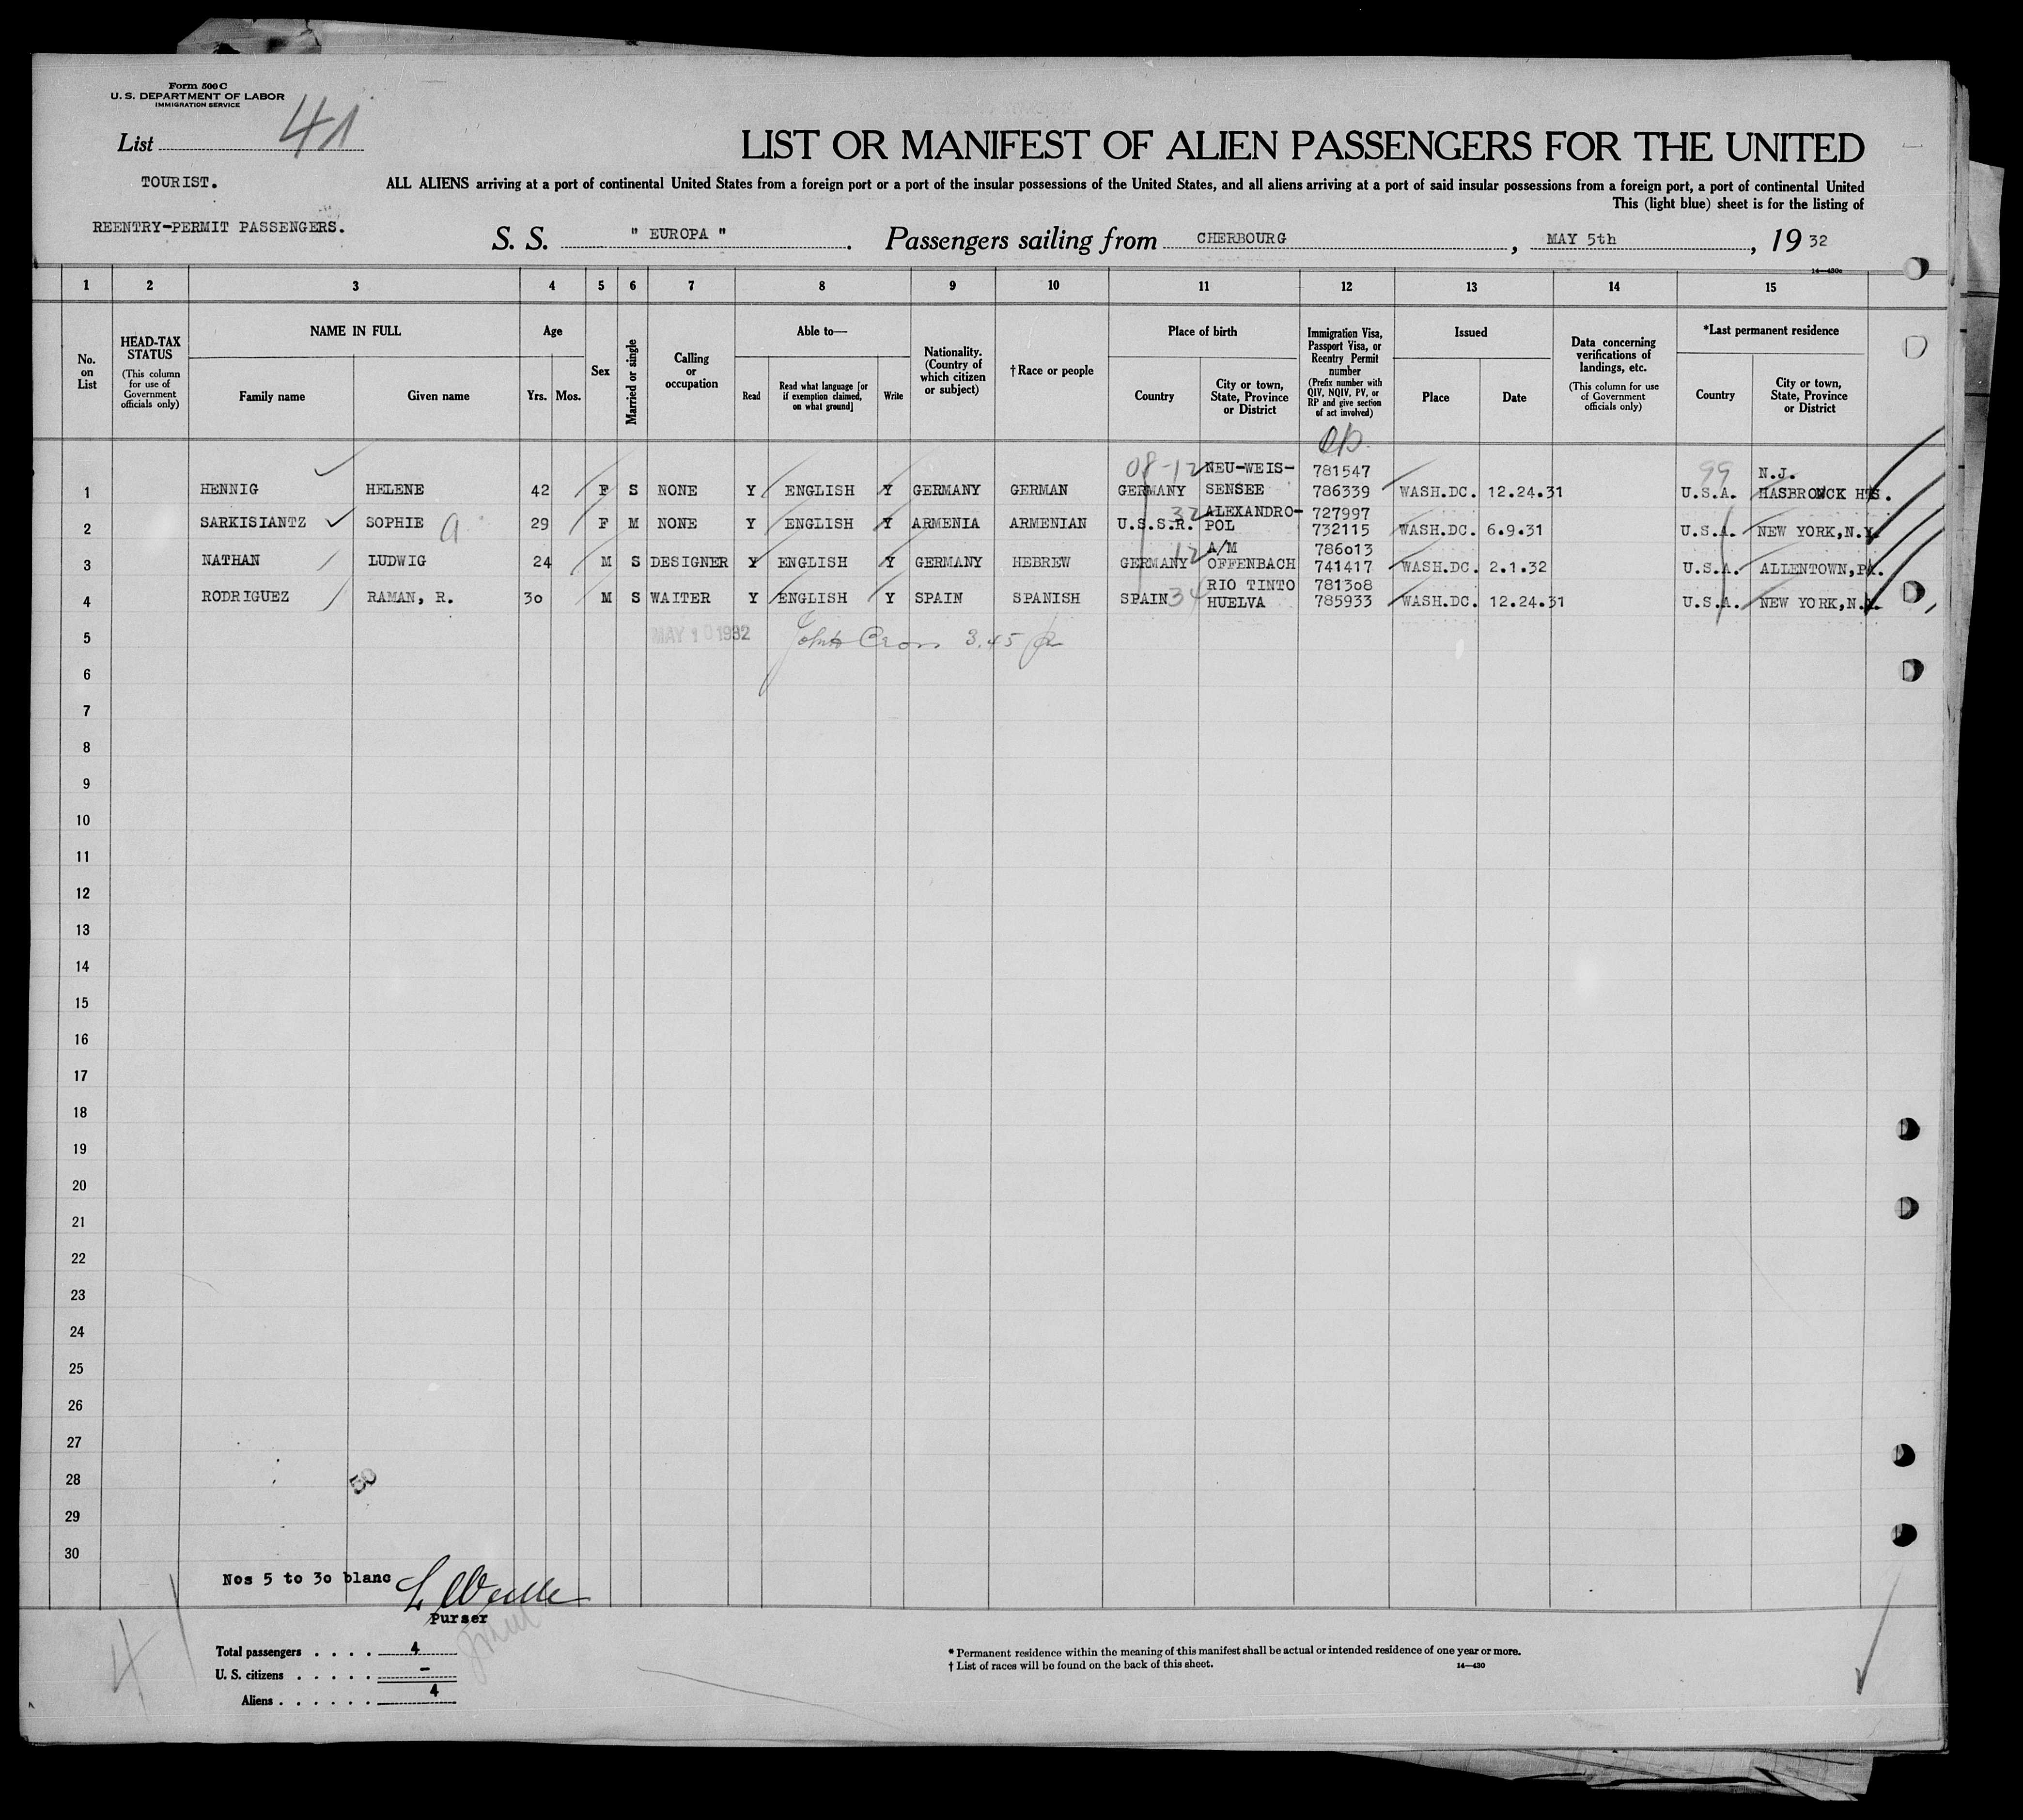 Form 500 C
U. S. DEPARTMENT OF LABOR
IMMIGRATION SERVICE
List 41
TOURIST.
REENTRY-PERMIT PASSENGERS.
LIST OR MANIFEST OF ALIEN PASSENGERS FOR THE UNITED
ALL ALIENS arriving at a port of continental United States from a foreign port or a port of the insular possessions of the United States, and all aliens arriving at a port of said insular possessions from a foreign port, a port of continental United
This (light blue) sheet is for the listing of
S. S. " EUROPA " . Passengers sailing from CHERBOURG , MAY 5th , 19 32
14—430c
1 2 3 4 5 6 7 8 9 10 11 12 13 14 15
No. on List
HEAD-TAX STATUS (This column for use of Government officials only)
NAME IN FULL
Family name Given name
Age
Yrs. Mos.
Sex
Married or single
Calling or occupation
Able to—
Read Read what language [or if exemption claimed, on what ground] Write
Nationality. (Country of which citizen or subject)
† Race or people
Place of birth
Country City or town, State, Province or District
Immigration Visa, Passport Visa, or Reentry Permit number (Prefix number with QIV, NQIV, PV, or RP and give section of act involved)
Issued
Place Date
Data concerning verifications of landings, etc. (This column for use of Government officials only)
*Last permanent residence
Country City or town, State, Province or District
08-12 NEU-WEIS- 781547 99 N.J.
1 HENNIG HELENE 42 F S NONE Y ENGLISH Y GERMANY GERMAN GERMANY SENSEE 786339 WASH.DC. 12.24.31 U.S.A. HASBROUCK HTS.
32 ALEXANDRO- 727997
2 SARKISIANTZ SOPHIE a 29 F M NONE Y ENGLISH Y ARMENIA ARMENIAN U.S.S.R. POL 732115 WASH.DC. 6.9.31 U.S.A. NEW YORK,N.Y.
12 A/M 786013
3 NATHAN LUDWIG 24 M S DESIGNER Y ENGLISH Y GERMANY HEBREW GERMANY OFFENBACH 741417 WASH.DC. 2.1.32 U.S.A. ALLENTOWN,PA.
RIO TINTO 781308
4 RODRIGUEZ RAMAN, R. 30 M S WAITER Y ENGLISH Y SPAIN SPANISH SPAIN 34 HUELVA 785933 WASH.DC. 12.24.31 U.S.A. NEW YORK,N.Y.
5 MAY 10 1932 3.45
6
7
8
9
10
11
12
13
14
15
16
17
18
19
20
21
22
23
24
25
26
27
28
29
30
Nos 5 to 30 blanc
Purser
41
Total passengers . . . . 4
U. S. citizens . . . . . –
Aliens . . . . . . 4
* Permanent residence within the meaning of this manifest shall be actual or intended residence of one year or more.
† List of races will be found on the back of this sheet.
14—430